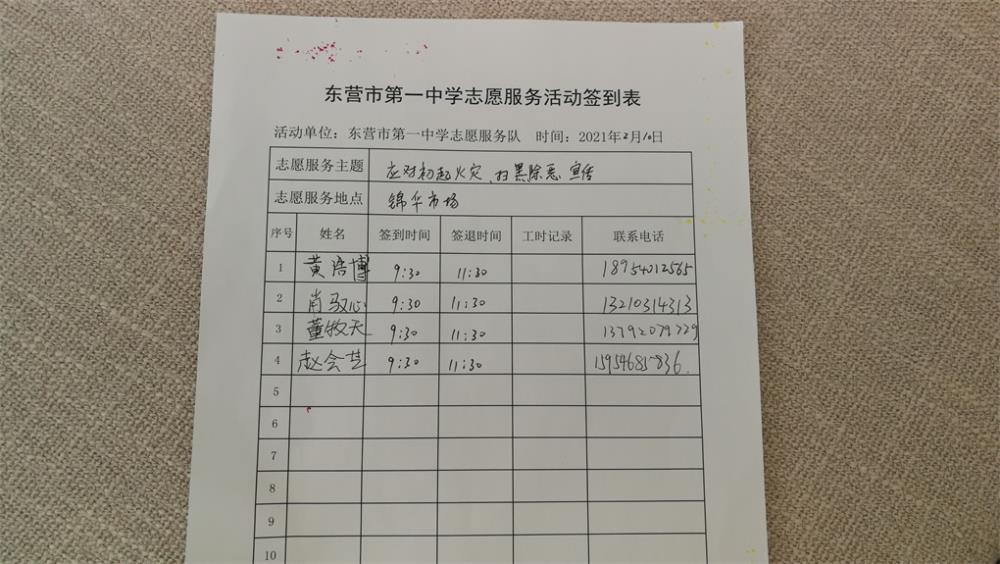 东营市第一中学志愿服务活动签到表
活动单位：东营市第一中学志愿服务队 时间：2021年2月10日
志愿服务主题 应对初起火灾、扫黑除恶宣传
志愿服务地点 锦华市场
序号 姓名 签到时间 签退时间 工时记录 联系电话
1 黄浩博 9:30 11:30 18954012565
2 肖驭心 9:30 11:30 13210314313
3 董牧天 9:30 11:30 13792079229
4 赵会芸 9:30 11:30 15954685836
5
6
7
8
9
10